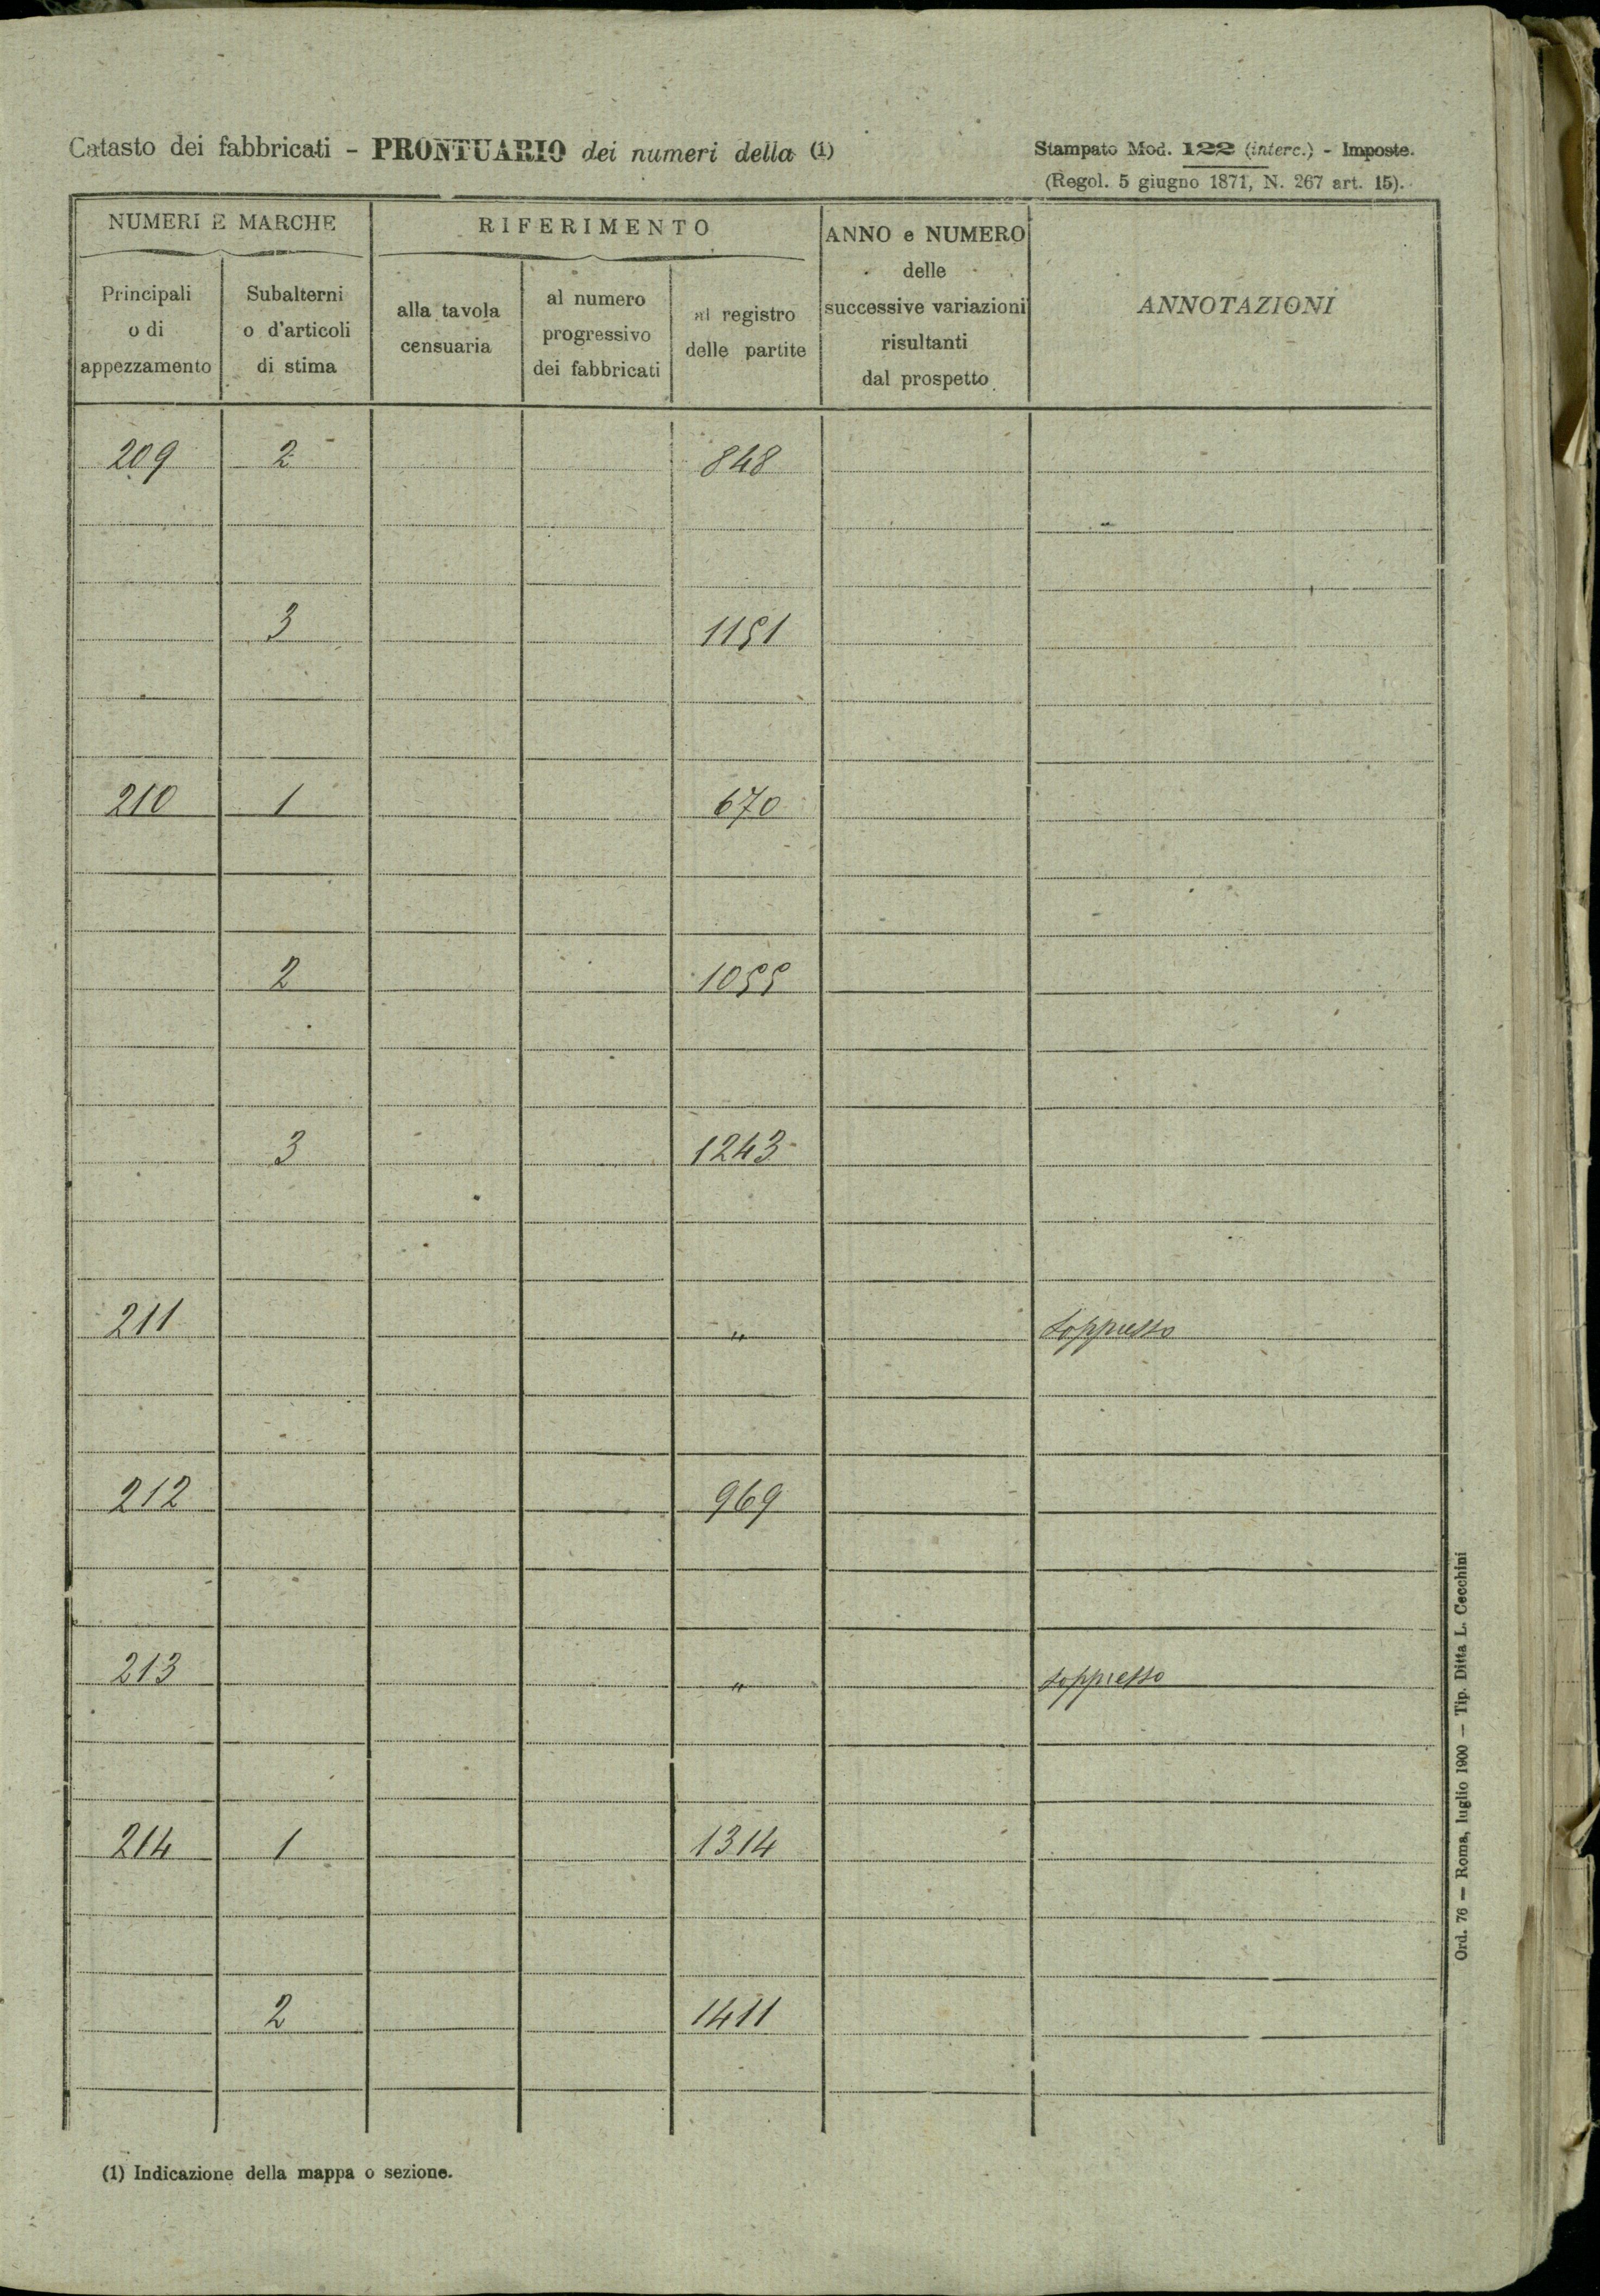 Catasto dei fabbricati - PRONTUARIO dei numeri della (1)
Stampato Mod. 122 (interc.) - Imposte.
(Regol. 5 giugno 1871, N. 267 art. 15).
NUMERI E MARCHE
Principali
o di
appezzamento
Subalterni
o d'articoli
di stima
RIFERIMENTO
alla tavola
censuaria
al numero
progressivo
dei fabbricati
al registro
delle partite
ANNO e NUMERO
delle
successive variazioni
risultanti
dal prospetto
ANNOTAZIONI
209 2 848
3 1151
210 1 670
2 1055
3 1243
211 " soppresso
212 969
213 " soppresso
214 1 1314
2 1411
(1) Indicazione della mappa o sezione.
Ord. 76 — Roma, luglio 1900 — Tip. Ditta L. Cecchini